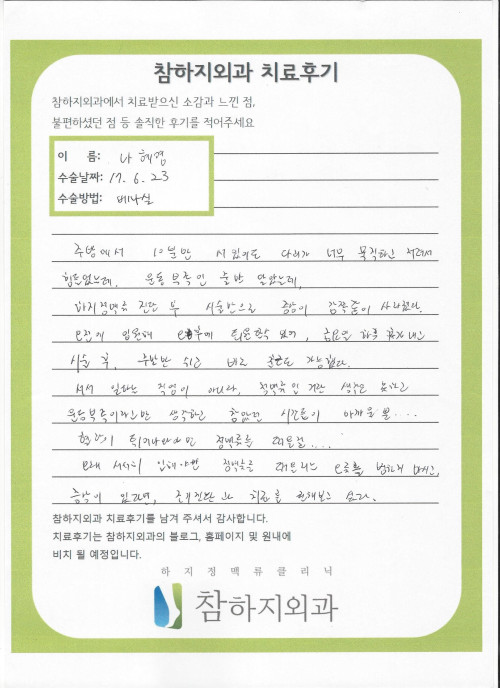 참하지외과 치료후기
참하지외과에서 치료받으신 소감과 느낀 점,
불편하셨던 점 등 솔직한 후기를 적어주세요
이 름: 나 혜경
수술날짜: 17. 6. 23
수술방법: 베나실
주방에서 10분만 서있어도 다리가 너무 묵직하고 저려서
힘들었는데, 운동 부족인 줄만 알았는데,
하지정맥류 진단 후 시술만으로 증상이 감쪽같이 사라졌다.
오전에 입원해 오후에 퇴원할수 있어, 금요일 하루 휴가내고
시술 후, 주말만 쉬고 바로 출근도 가능했다.
서서 일하는 직업이 아니라, 정맥류인 거란 생각도 못하고
운동부족이라고만 생각하고 참았던 시간들이 아까울 뿐....
혈관이 튀어나와야만 정맥류인줄 ....
오래 서서 일해야만 정맥류를
증상이 있다면, 조기진단과 치료를 권해보고 싶다.
참하지외과 치료후기를 남겨 주셔서 감사합니다.
치료후기는 참하지외과의 블로그, 홈페이지 및 원내에
비치 될 예정입니다.
하지정맥류클리닉
참하지외과